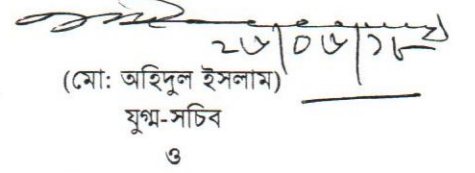 ২৬/০৬/১৮
(মো: অহিদুল ইসলাম)
যুগ্ম-সচিব
ও